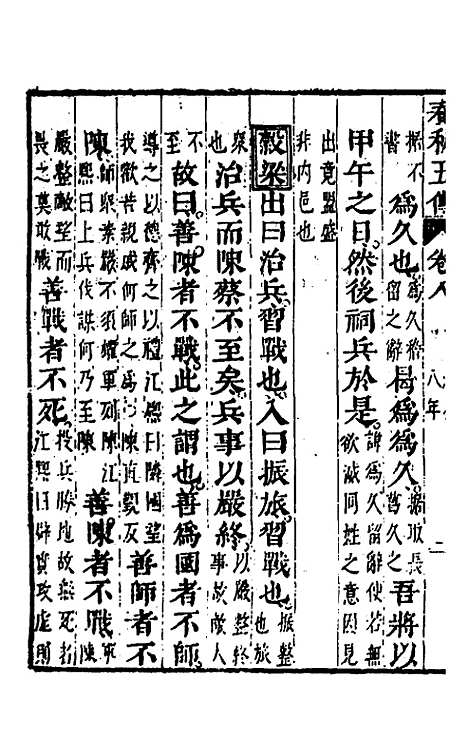 春秋五傳 卷八 八年 二
據不書 爲久也 爲久稽留之辭 曷爲爲久 據取長葛久之 吾將以
甲午之日然後祠兵於是 諱爲久留辭使若無欲滅同姓之意因見
出竟盟盛非內邑也
穀梁 出曰治兵習戰也入曰振旅習戰也 振整也旅
衆也 治兵而陳蔡不至矣兵事以嚴終 以嚴整終事故敵人
不至 故曰善陳者不戰此之謂也善爲國者不師
導之以德齊之以禮江熙曰鄰國望我歡若親戚何師之爲 陳直覲反 善師者不
陳 師衆素嚴不須耀軍列陳江熙曰上兵伐謀何乃至陳 善陳者不戰 軍陳
嚴整敵望而畏之莫敢戰 善戰者不死 投兵勝地故無死者江熙曰辟實攻虛則